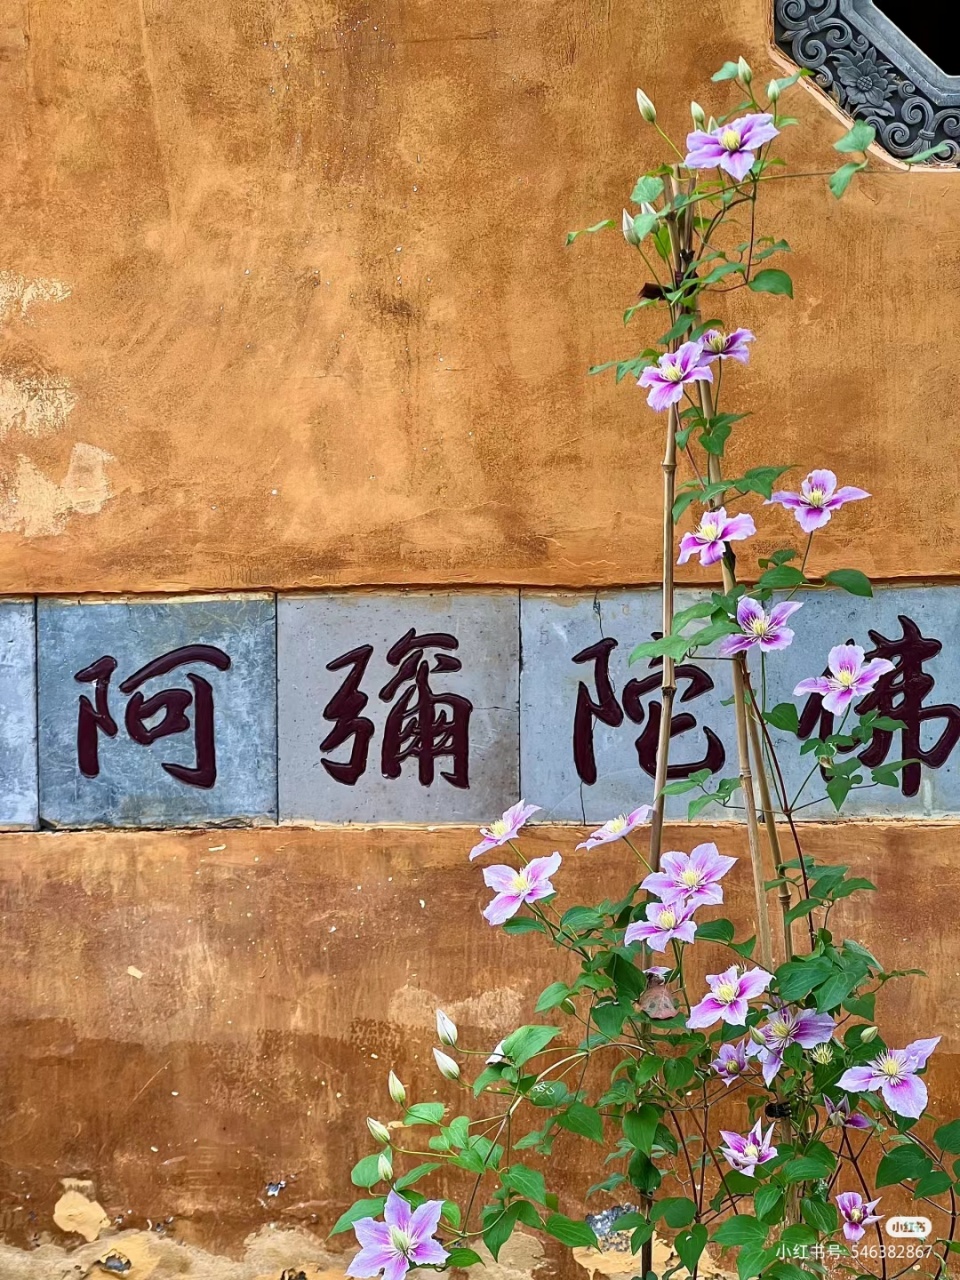 阿彌陀佛
小红书
小红书号: 546382867